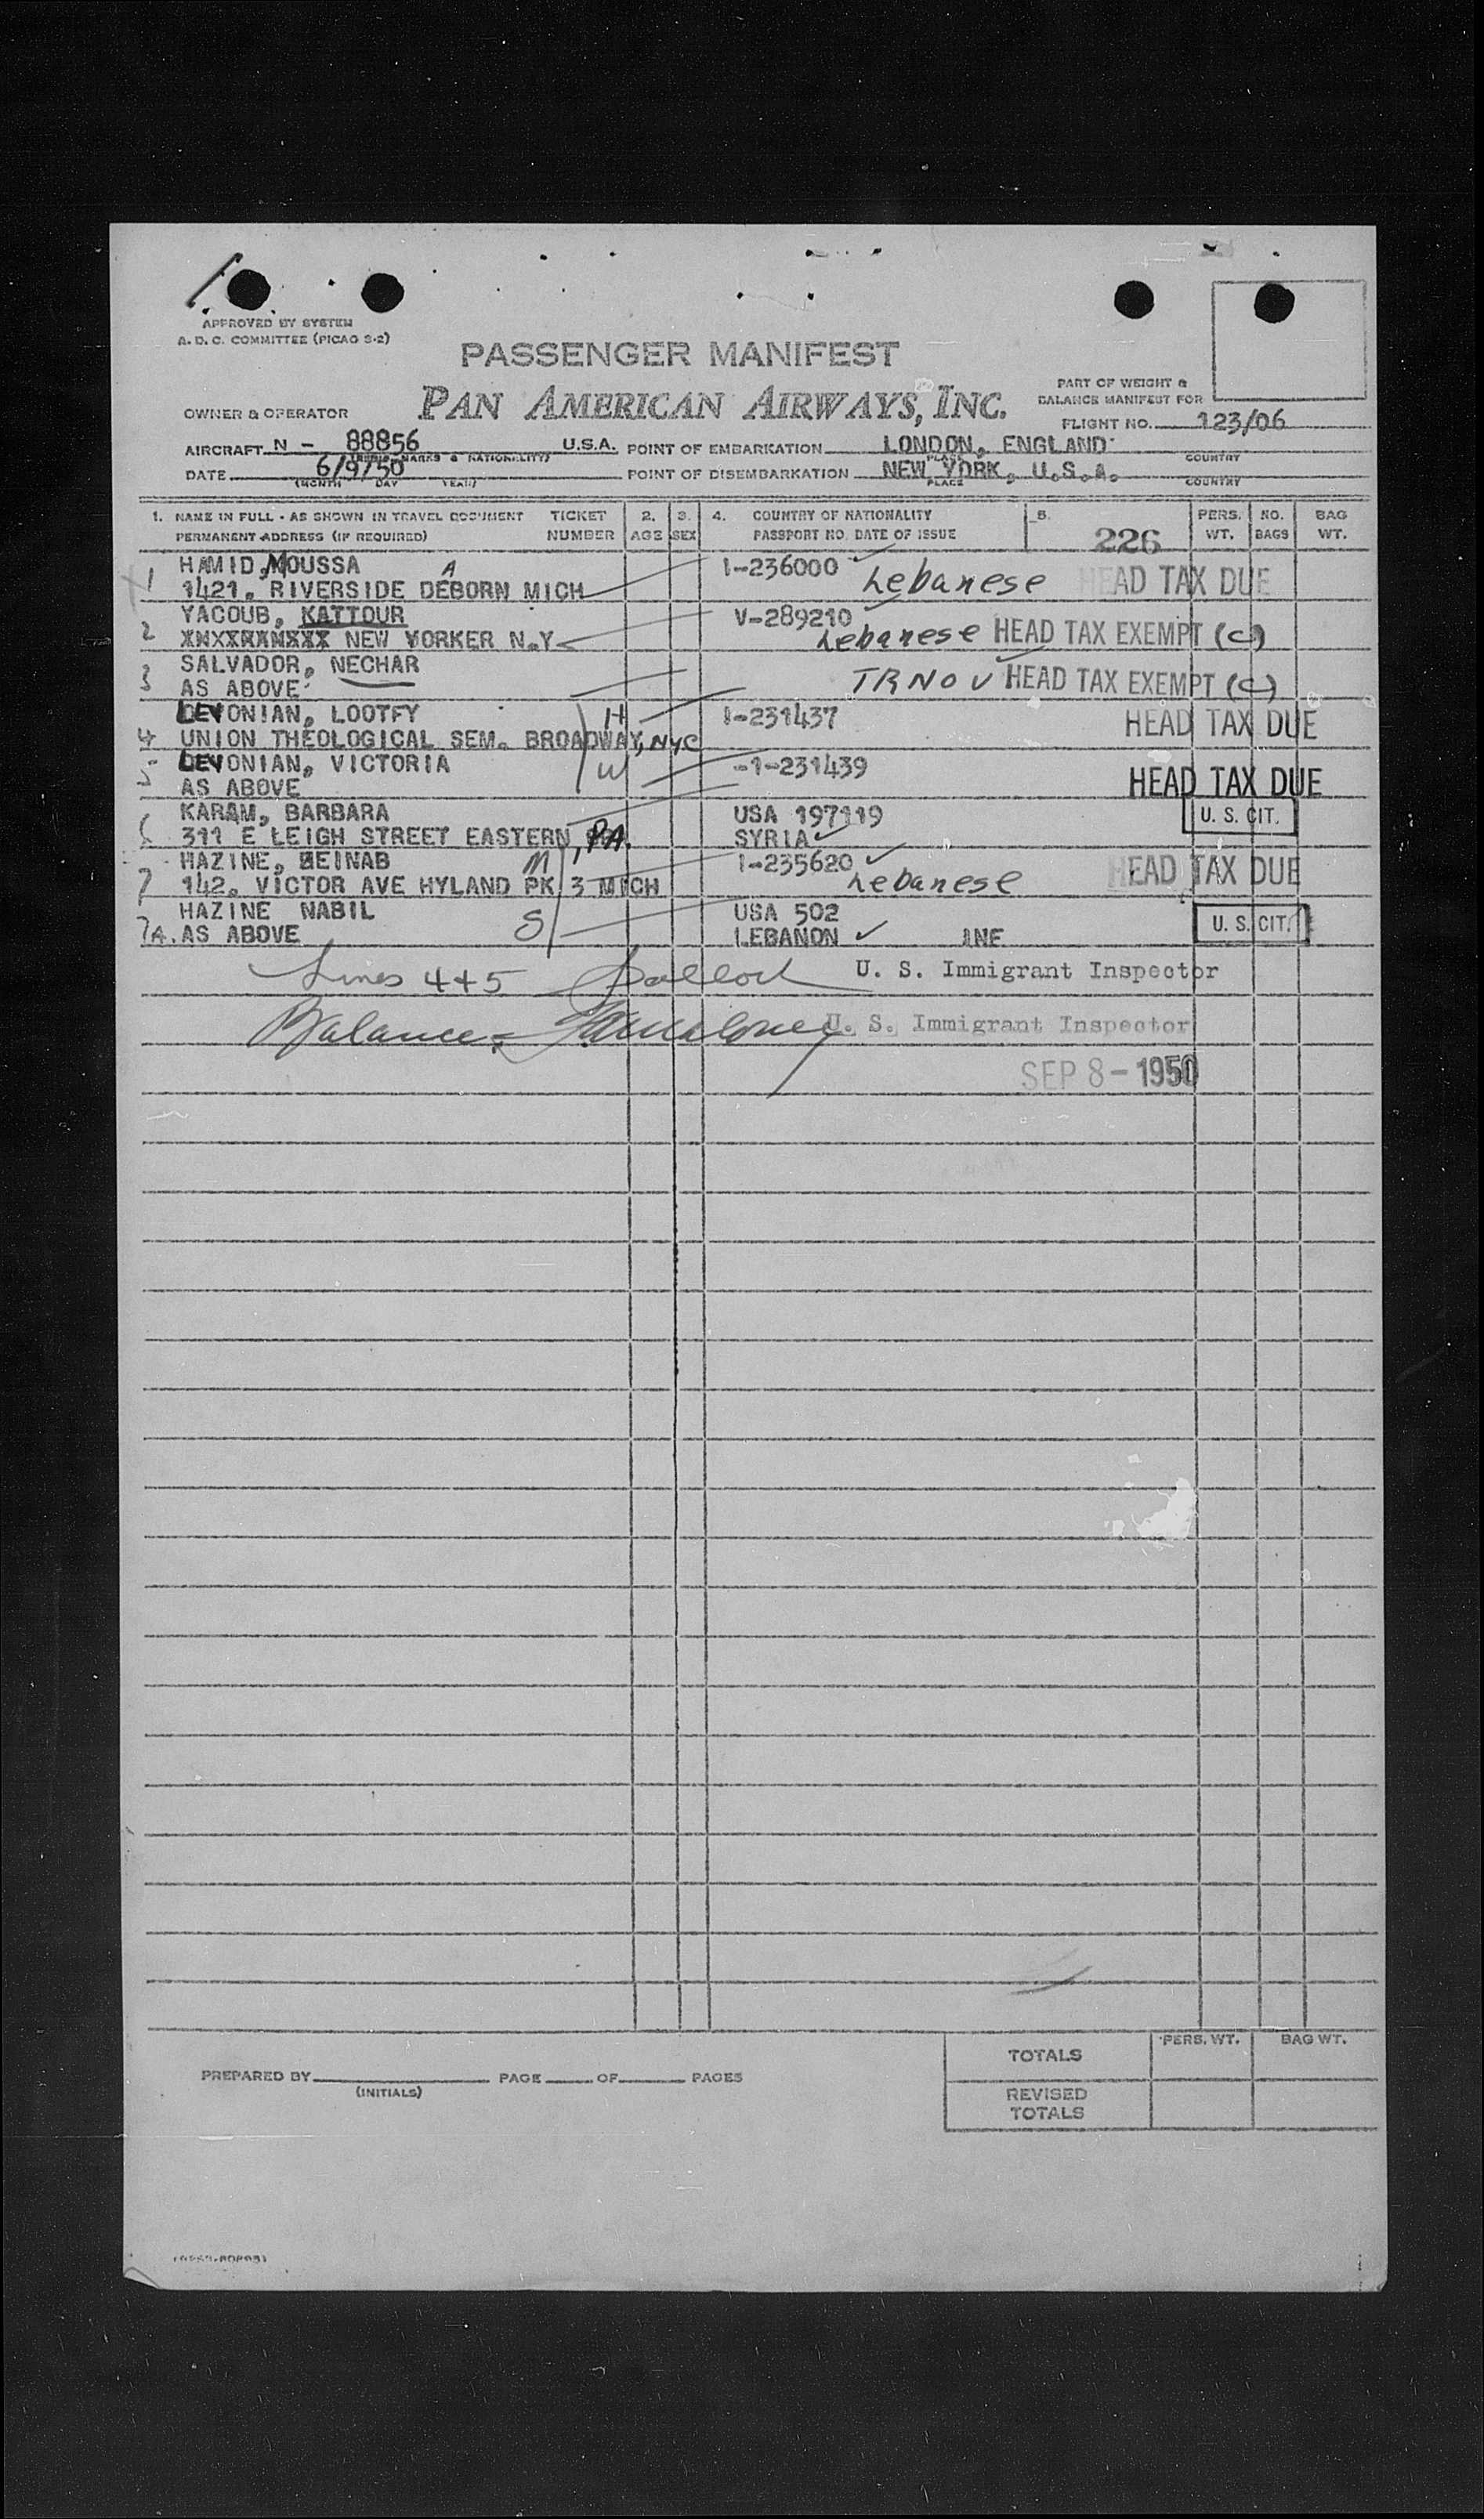 APPROVED BY SYSTEM
A. D. C. COMMITTEE (PICAO S-2)
PASSENGER MANIFEST
PAN AMERICAN AIRWAYS, INC.
PART OF WEIGHT &
BALANCE MANIFEST FOR
OWNER & OPERATOR
FLIGHT NO. 123/06
AIRCRAFT N - 88856 U.S.A. POINT OF EMBARKATION LONDON, ENGLAND
MARKS & NATIONALITY) PLACE COUNTRY
DATE 6/9/50 POINT OF DISEMBARKATION NEW YORK, U.S.A.
(MONTH DAY YEAR) PLACE COUNTRY
1. NAME IN FULL - AS SHOWN IN TRAVEL DOCUMENT TICKET 2. 3. 4. COUNTRY OF NATIONALITY 5. PERS. NO. BAG
PERMANENT ADDRESS (IF REQUIRED) NUMBER AGE SEX PASSPORT NO. DATE OF ISSUE 226 WT. BAGS WT.
HAMID, MOUSSA I-236000 Lebanese HEAD TAX DUE
1 1421. RIVERSIDE DEBORN MICH A
YACOUB, KATTOUR V-289210
2 NEW YORKER N.Y. Lebanese HEAD TAX EXEMPT (C)
SALVADOR, NECHAR
3 AS ABOVE TRNOV HEAD TAX EXEMPT (C)
DEVONIAN, LOOTFY H I-231437 HEAD TAX DUE
4 UNION THEOLOGICAL SEM. BROADWAY, NYC
DEVONIAN, VICTORIA W -1-231439
5 AS ABOVE HEAD TAX DUE
KARAM, BARBARA USA 197119 U. S. CIT.
6 311 E LEIGH STREET EASTERN, PA. SYRIA
HAZINE, ZEINAB M I-235620 HEAD TAX DUE
7 142. VICTOR AVE HYLAND PK 3 MICH Lebanese
HAZINE NABIL S USA 502 U. S. CIT.
7A. AS ABOVE LEBANON INF
Lines 4+5 U. S. Immigrant Inspector
Balance - U. S. Immigrant Inspector
SEP 8 - 1950
TOTALS PERS. WT. BAG WT.
PREPARED BY PAGE OF PAGES
(INITIALS)
REVISED
TOTALS